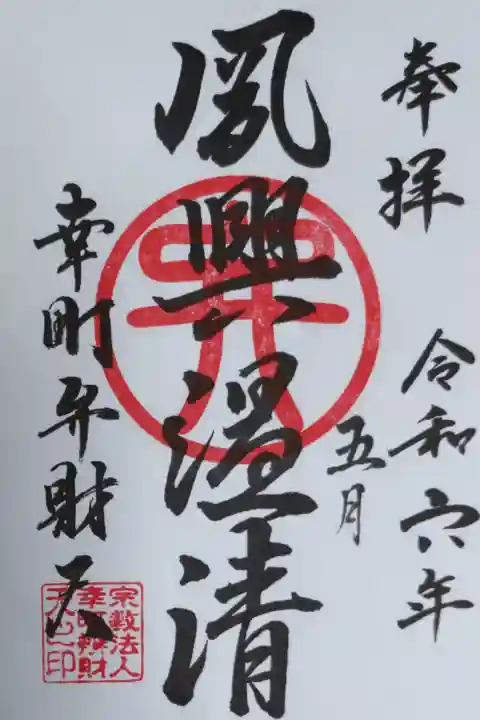 奉拝 令和六年
五月
夙興温清
幸町弁財天
宗教法人
幸町辨財
天之印